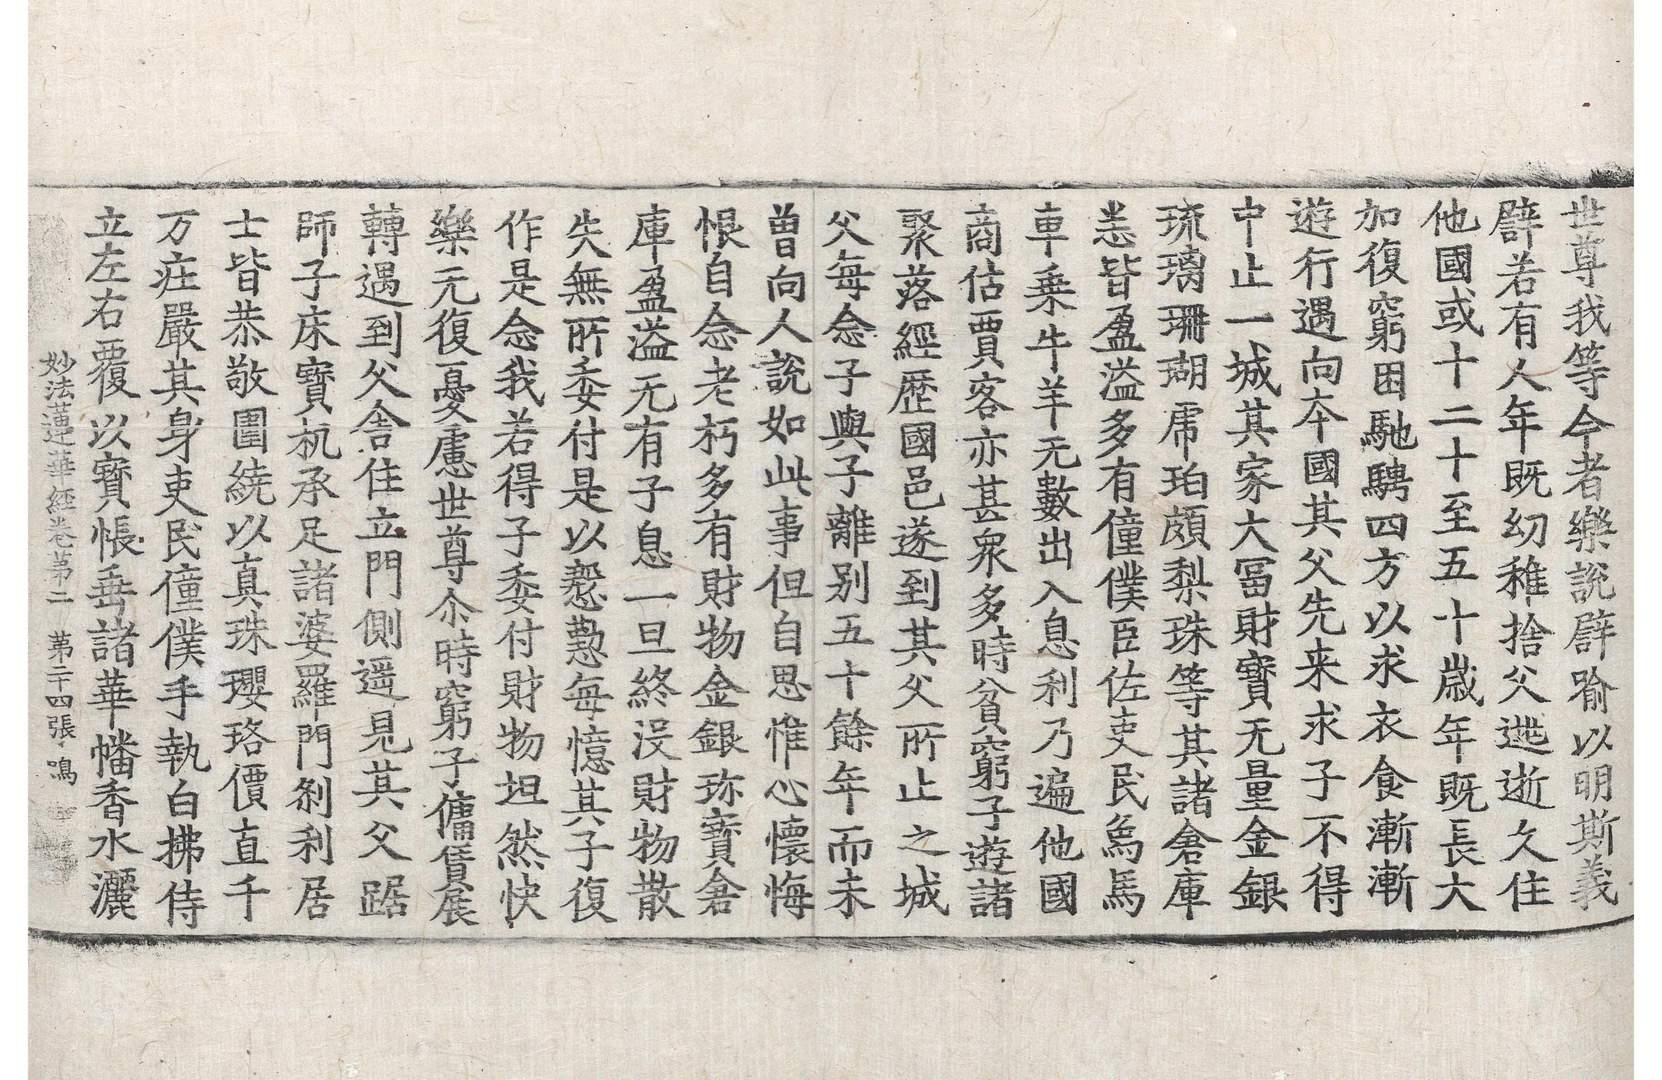 世尊我等今者樂說譬喻以明斯義
譬若有人年既幼稚捨父逃逝久住
他國或十二十至五十歲年既長大
加復窮困馳騁四方以求衣食漸漸
遊行遇向本國其父先来求子不得
中止一城其家大冨財寶无量金銀
琉璃珊瑚虎珀頗梨珠等其諸倉庫
悉皆盈溢多有僮僕臣佐吏民象馬
車乗牛羊无數出入息利乃遍他國
商估賈客亦甚衆多時貧窮子遊諸
聚落經歷國邑遂到其父所止之城
父每念子與子離別五十餘年而未
曽向人說如此事但自思惟心懷悔
恨自念老朽多有財物金銀珎寶倉
庫盈溢无有子息一旦終沒財物散
失無所委付是以慇懃每憶其子復
作是念我若得子委付財物坦然快
樂无復憂慮世尊尒時窮子傭賃展
轉遇到父舎住立門側遥見其父踞
師子床寶机承足諸婆羅門剎利居
士皆恭敬圍繞以真珠瓔珞價直千
万疘嚴其身吏民僮僕手執白拂侍
立左右覆以寶帳垂諸華幡香水灑
妙法蓮華經卷第二　第二十四張　鳴